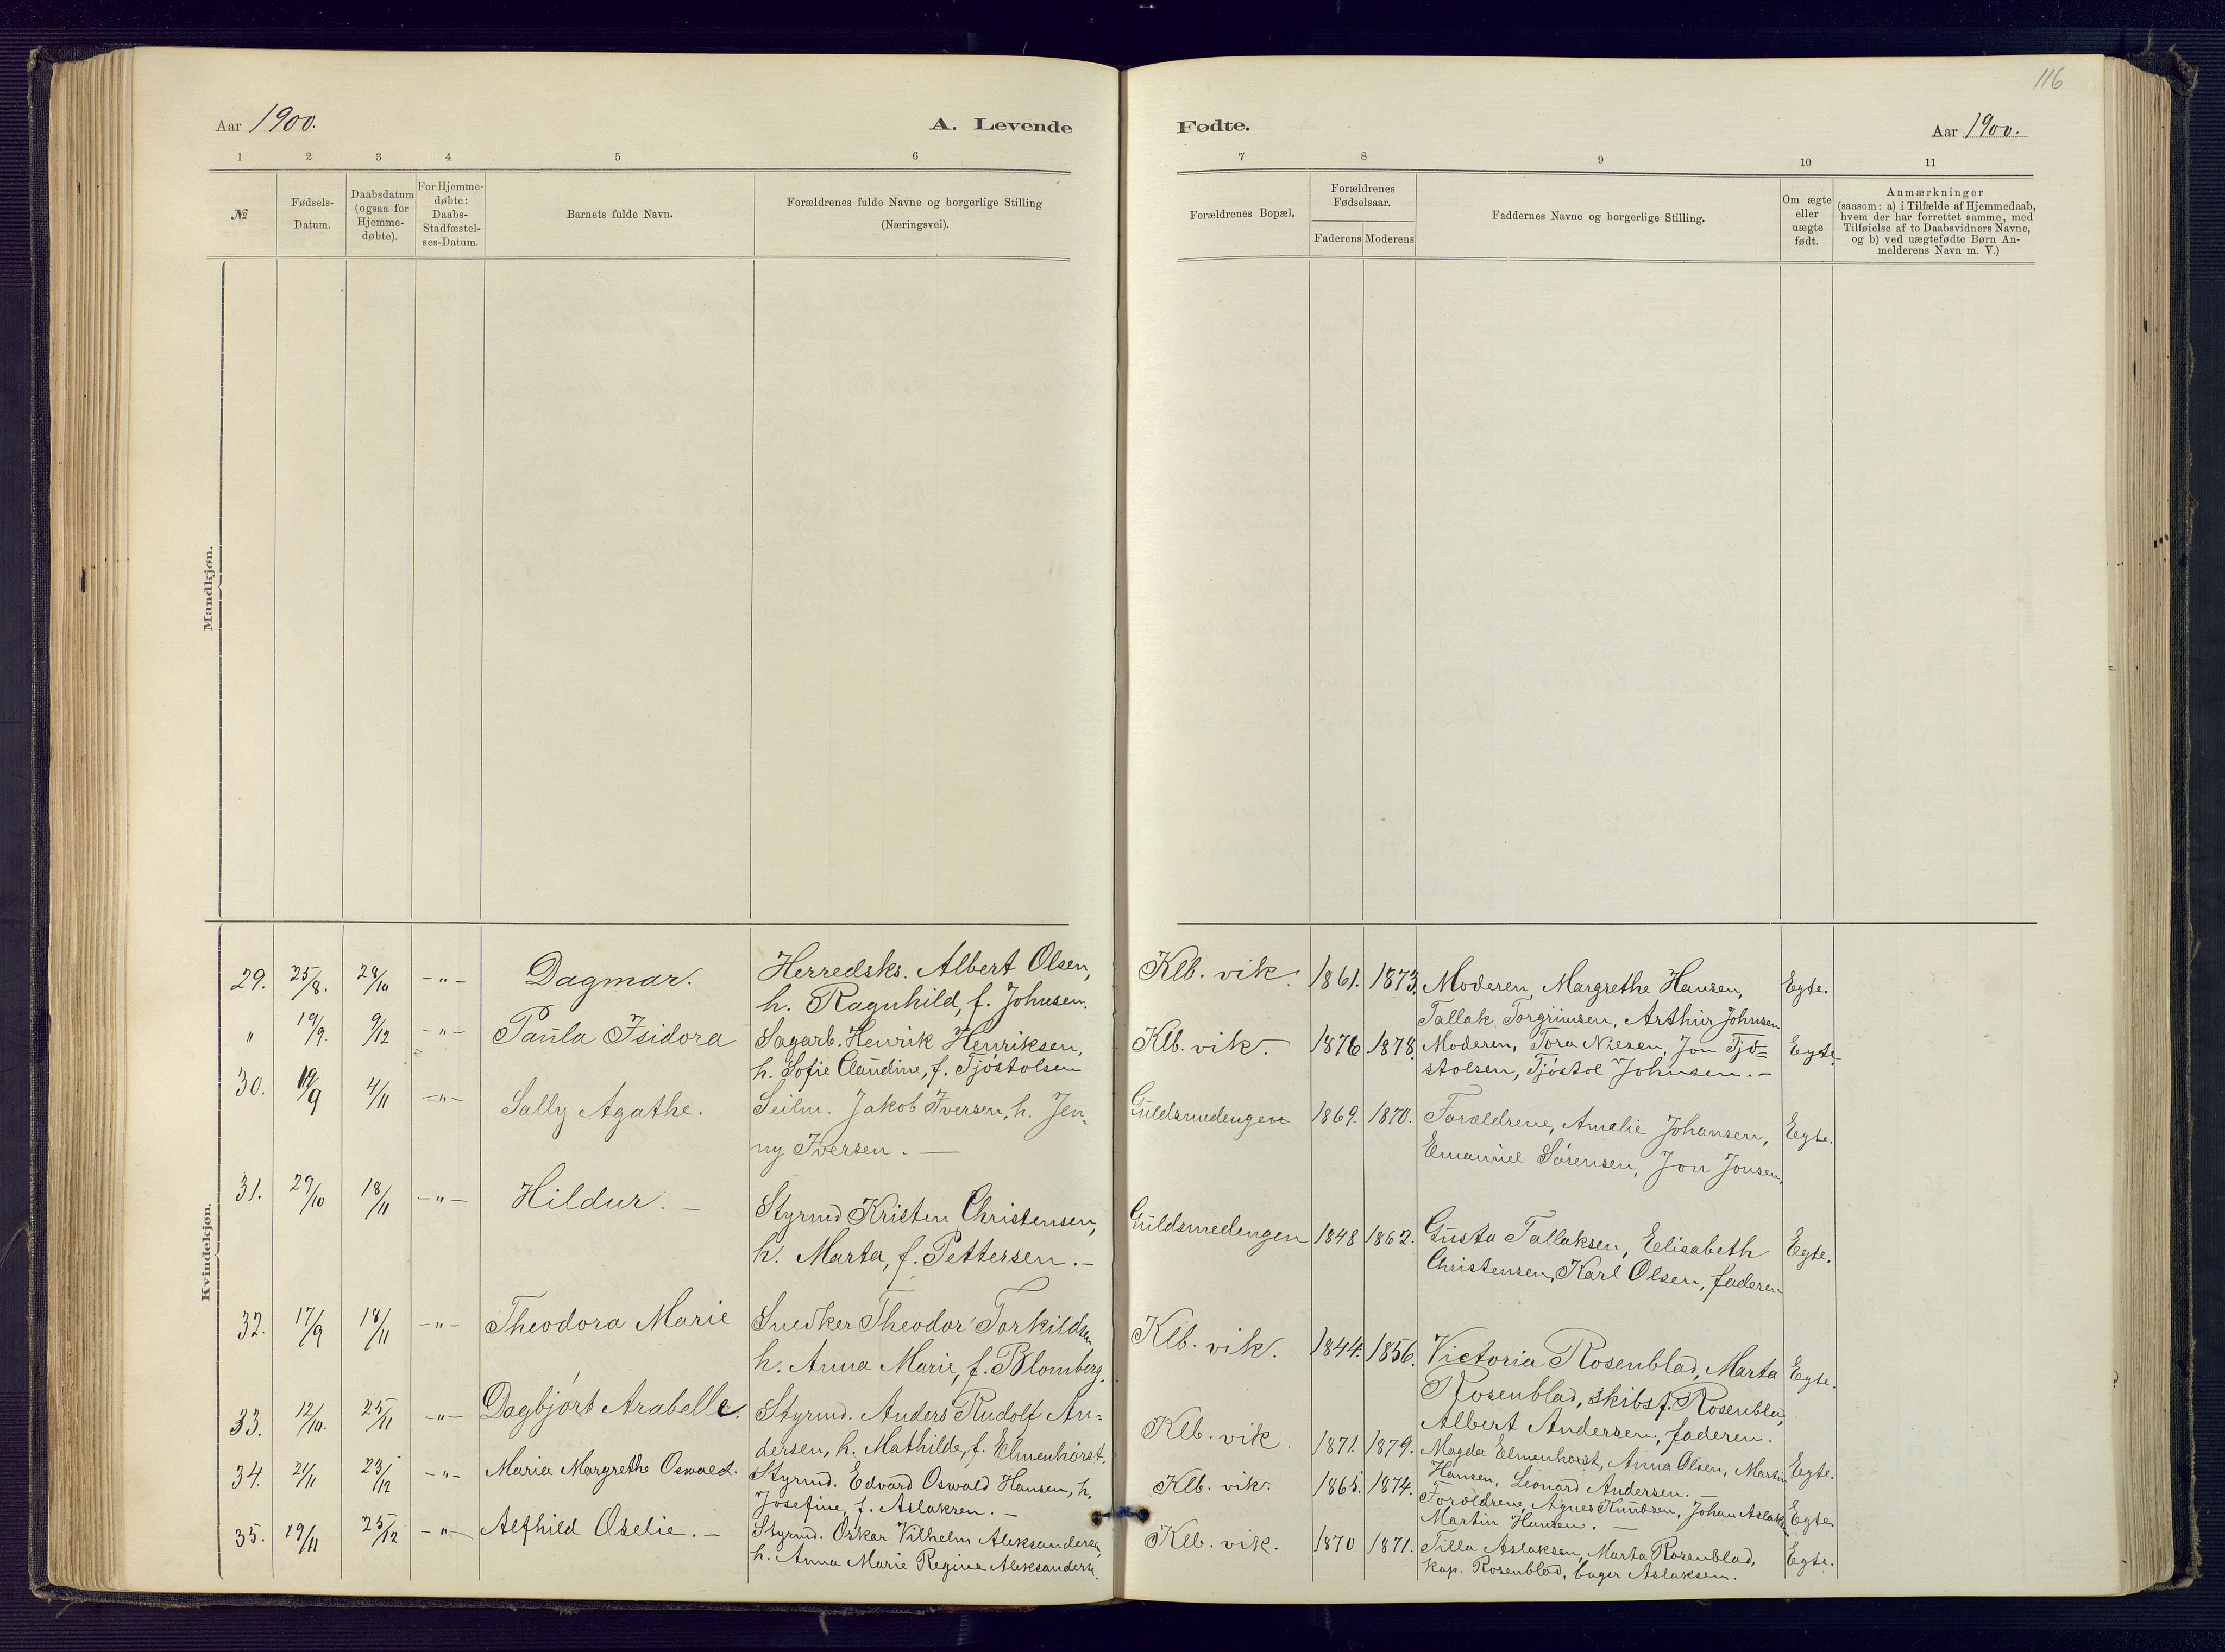 116
Aar 1900.
A. Levende Fødte.
Aar 1900.
1 2 3 4 5 6 7 8 9 10 11
№
Fødsels-
Datum.
Daabsdatum
(ogsaa for
Hjemme-
døbte).
For Hjemme-
døbte:
Daabs-
Stadfæstel-
ses-Datum.
Barnets fulde Navn.
Forældrenes fulde Navne og borgerlige Stilling
(Næringsvei).
Forældrenes Bopæl.
Forældrenes
Fødselsaar.
Faderens Moderens
Faddernes Navne og borgerlige Stilling.
Om ægte
eller
uægte
født.
Anmærkninger
(saasom: a) i Tilfælde af Hjemmedaab,
hvem der har forrettet samme, med
Tilføielse af to Daabsvidners Navne,
og b) ved uægtefødte Børn An-
melderens Navn m. V.)
Mandkjøn.
Kvindekjøn.
29. 25/8. 28/10 -"- Dagmar. Herredsks. Albert Olsen, Klb. vik. 1861. 1873. Moderen, Margrethe Hansen, Egte.
h. Ragnhild, f. Johnsen. Tallak Torgrimsen, Arthur Johnsen
" 19/9. 9/12 -"- Paula Isidora Sagarb. Henrik Henriksen, Klb. vik. 1876 1878. Moderen, Tora Nilsen, Jon Tjö=
h. Sofie Claudine, f. Tjöstolsen stolsen, Tjöstol Johnsen. - Egte.
30. 19/9 4/11 -"- Sally Agathe. Seilm. Jakob Iversen, h. Jen- Guldsmedengen 1869. 1870. Forældrene, Amalie Johansen, Egte.
ny Iversen. - Emanuel Sörensen, Jon Jonsen.
31. 29/10 18/11 -"- Hildur. - Styrmd Kristen Christensen, Guldsmedengen 1848 1862. Gusta Tallaksen, Elisabeth Egte.
h. Marta, f. Pettersen. - Christensen, Karl Olsen, faderen
32. 17/9 18/11 -"- Theodora Marie Snedker Theodor Torkildsen Klb. vik. 1844. 1856. Victoria Rosenblad, Marta Egte.
h. Anna Marie, f. Blomberg. Rosenblad, skibsf. Rosenblad,
Albert Andersen, faderen.
33. 12/10. 25/11 -"- Dagbjört Arabelle. Styrmd. Anders Rudolf An= Klb. vik. 1871. 1879. Magda Elmenhorst, Anna Olsen, Martin Egte.
dersen, h. Mathilde, f. Elmenhorst. Hansen, Leonard Andersen. -
34. 21/11 23/12 -"- Maria Margrethe Oswald. Styrmd. Edvard Oswald Hansen, h. Klb. vik. 1865. 1874. Forældrene, Agnes Knudsen, Johan Aslaksen Egte.
Josefine, f. Aslaksen. - Martin Hansen. -
35. 19/11 25/12 -"- Alfhild Oselie. - Styrmd. Oskar Vilhelm Aleksandersen, Klb. vik. 1870 1871. Tilla Aslaksen, Marta Rosenblad, Egte.
h. Anna Marie Regine Aleksandersen. kap. Rosenblad, bager Aslaksen.